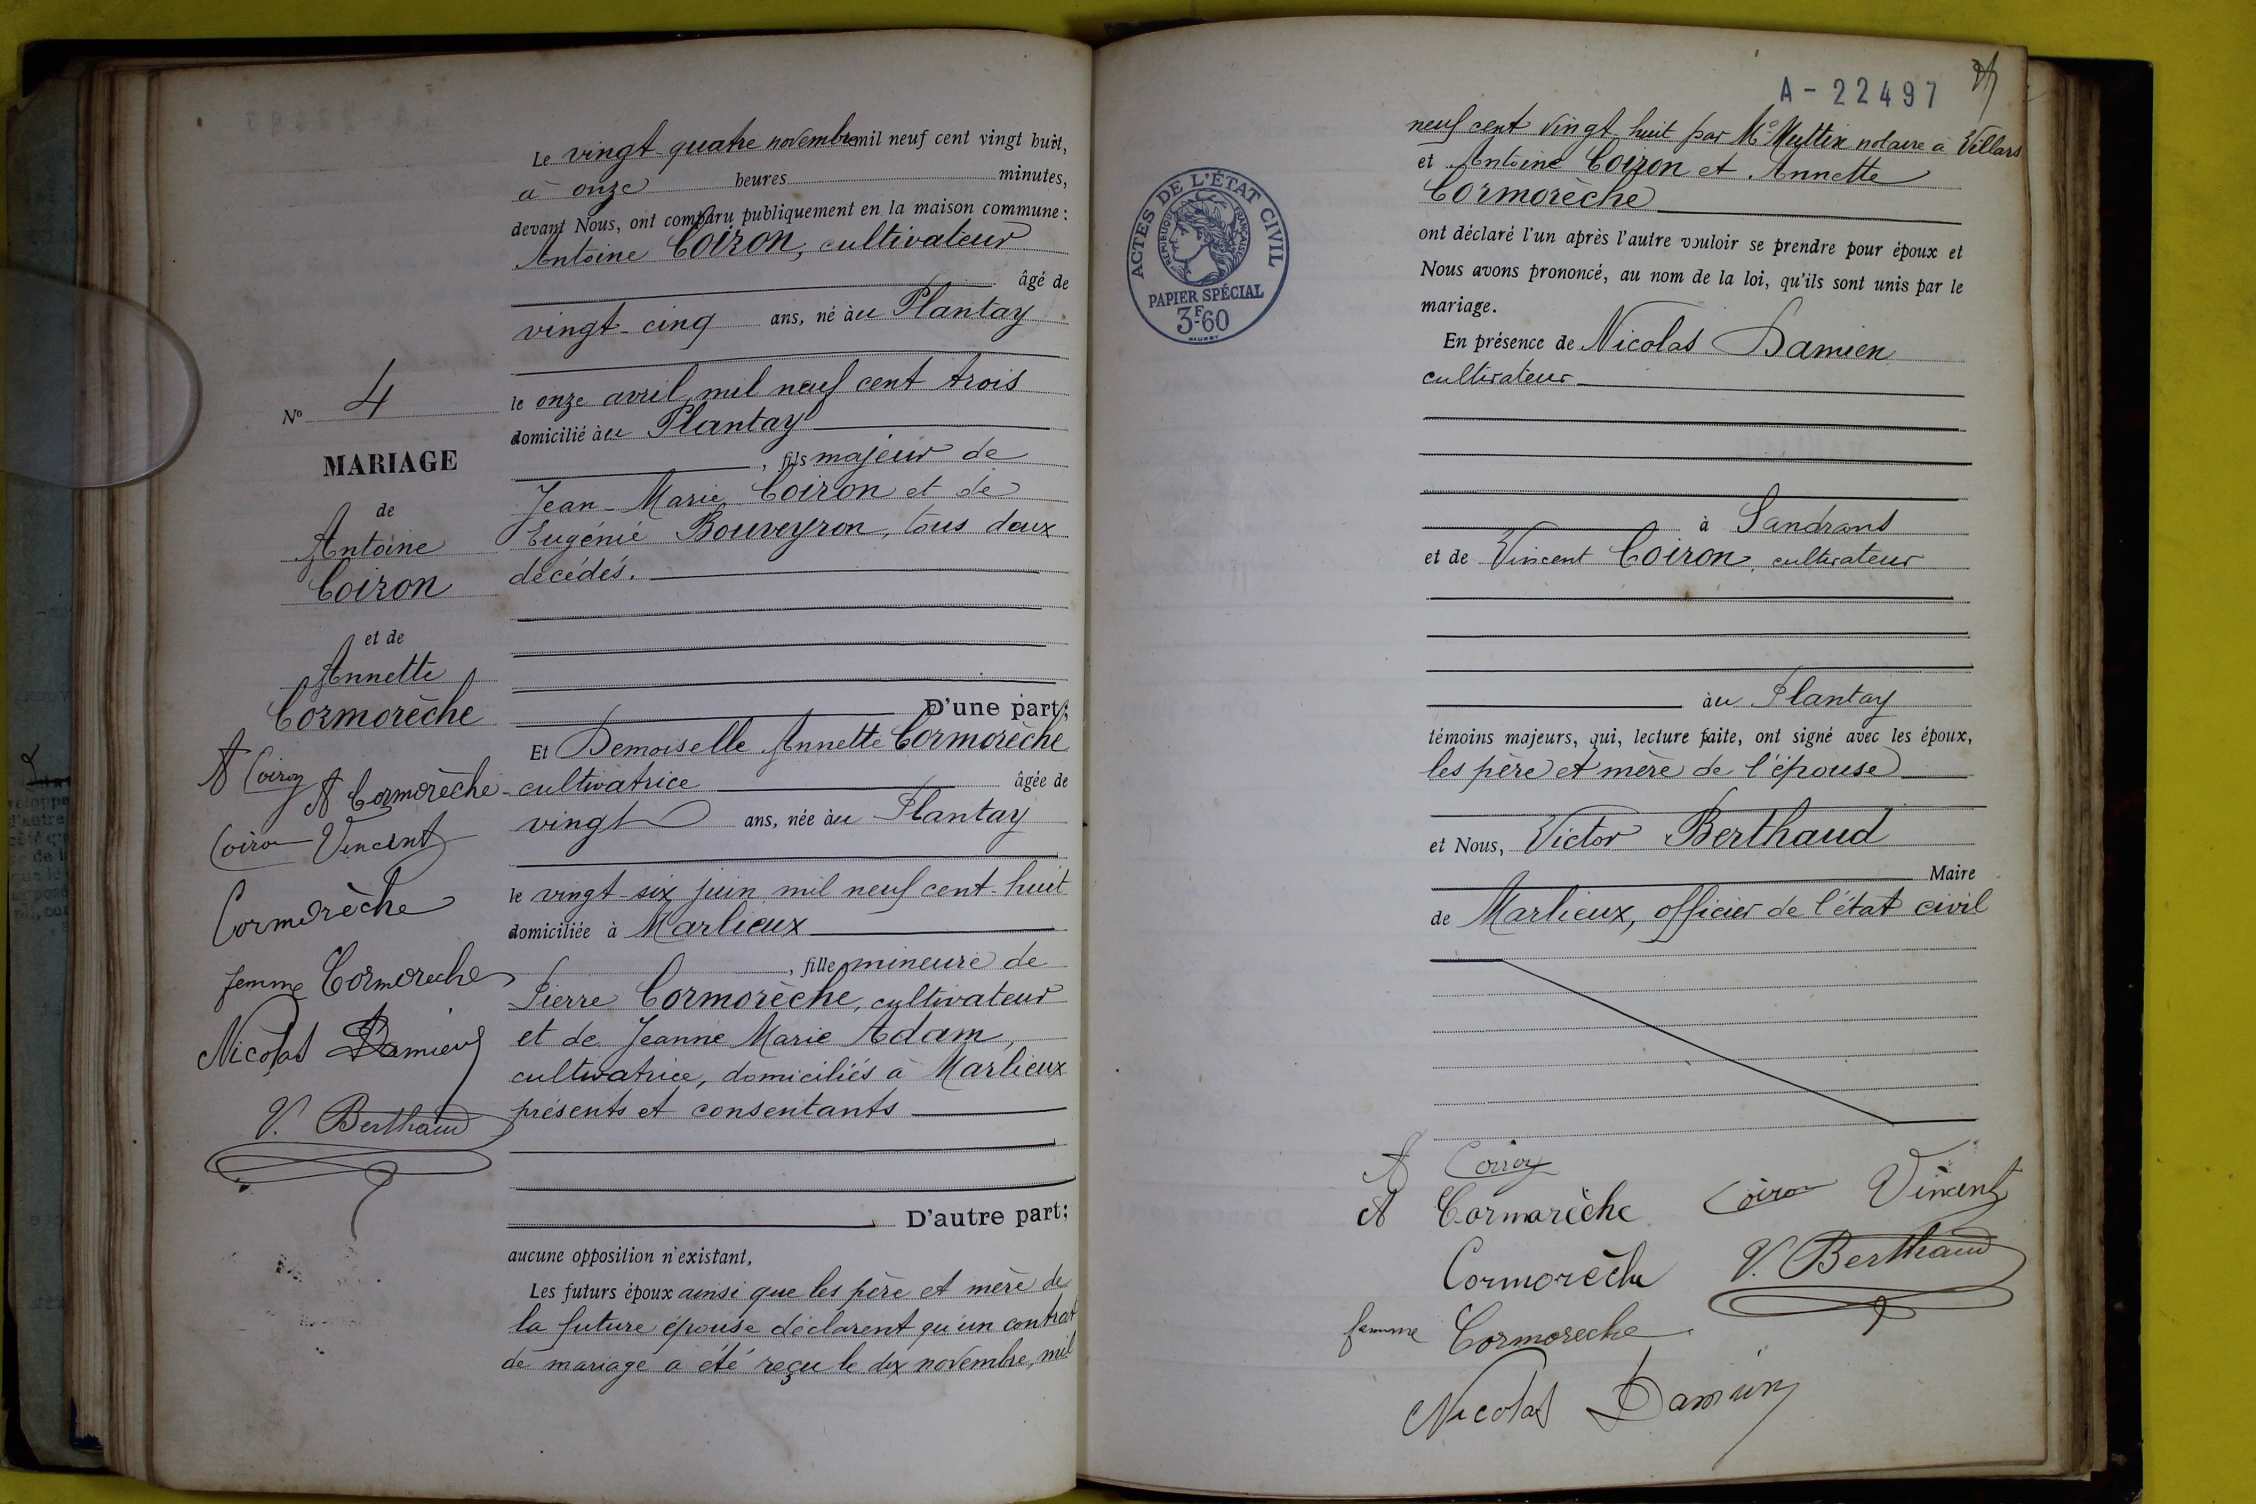 Le vingt-quatre novembre mil neuf cent vingt huit,
à onze heures minutes,
devant Nous, ont comparu publiquement en la maison commune :
Antoine Coiron, cultivateur
âgé de
vingt-cinq ans, né au Plantay
le onze avril mil neuf cent trois
domicilié au Plantay
, fils majeur de
Jean-Marie Coiron et de
Eugénie Bouveyron, tous deux
décédés.
D'une part;
Et Demoiselle Annette Cormorèche
cultivatrice âgée de
vingt ans, née au Plantay
le vingt-six juin mil neuf cent-huit
domiciliée à Marlieux
, fille mineure de
Pierre Cormorèche, cultivateur
et de Jeanne Marie Adam,
cultivatrice, domiciliés à Marlieux
présents et consentants
D'autre part;
aucune opposition n'existant,
Les futurs époux ainsi que les père et mère de
la future épouse déclarent qu'un contrat
de mariage a été reçu le dix novembre, mil
No 4
MARIAGE
de
Antoine
Coiron
et de
Annette
Cormorèche
A Coiron
A Cormorèche
Coiron Vincent
Cormorèche
femme Cormoreche
Nicolas Damien
V. Berthaud
A-22497
neuf cent vingt-huit par Me Muttin notaire à Villars
et Antoine Coiron et Annette
Cormorèche
ont déclaré l'un après l'autre vouloir se prendre pour époux et
Nous avons prononcé, au nom de la loi, qu'ils sont unis par le
mariage.
En présence de Nicolas Damien
cultivateur
à Sandrans
et de Vincent Coiron, cultivateur
au Plantay
témoins majeurs, qui, lecture faite, ont signé avec les époux,
les père et mère de l'épouse
et Nous, Victor Berthaud
Maire
de Marlieux, officier de l'état civil
A Coiron
A Cormorèche Coiron Vincent
Cormorèche V. Berthaud
femme Cormoreche
Nicolas Damien
ACTES DE L'ÉTAT CIVIL
RÉPUBLIQUE FRANÇAISE
PAPIER SPÉCIAL
3F60